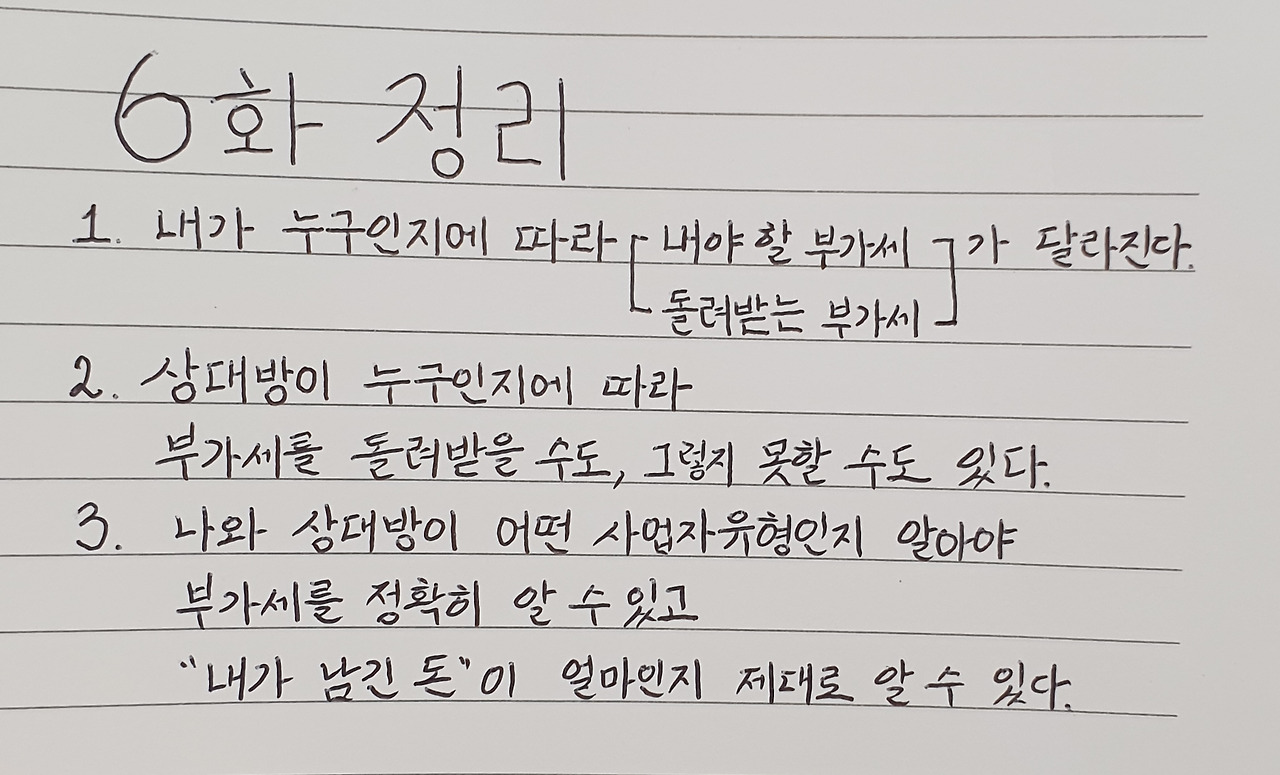 6화 정리
1. 내가 누구인지에 따라 내야 할 부가세 가 달라진다.
돌려받는 부가세
2. 상대방이 누구인지에 따라
부가세를 돌려받을 수도, 그렇지 못할 수도 있다.
3. 나와 상대방이 어떤 사업자유형인지 알아야
부가세를 정확히 알 수 있고
"내가 남긴 돈"이 얼마인지 제대로 알 수 있다.